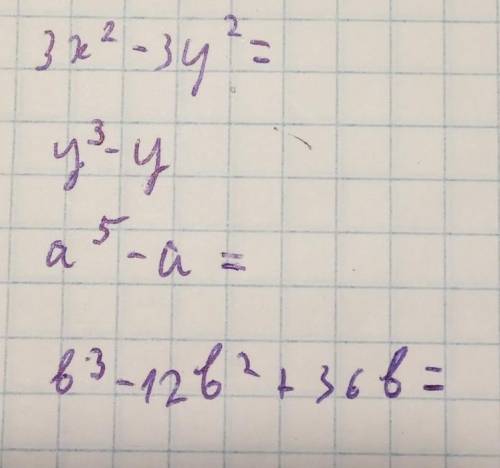 3x² - 3y² =
y³ - y
a⁵ - a =
b³ - 12b² + 36b =